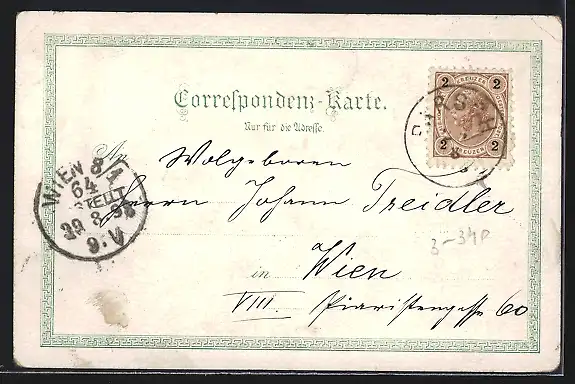 Correspondenz-Karte.
Nur für die Adresse.
2 KREUZER 2
2 KREUZER 2
WIEN 8/1
64
BESTELLT
29 8 98
9. V
An Wolgeboren
Herrn Johann Treidler
in Wien
VIII. Piaristengasse 60
3-340